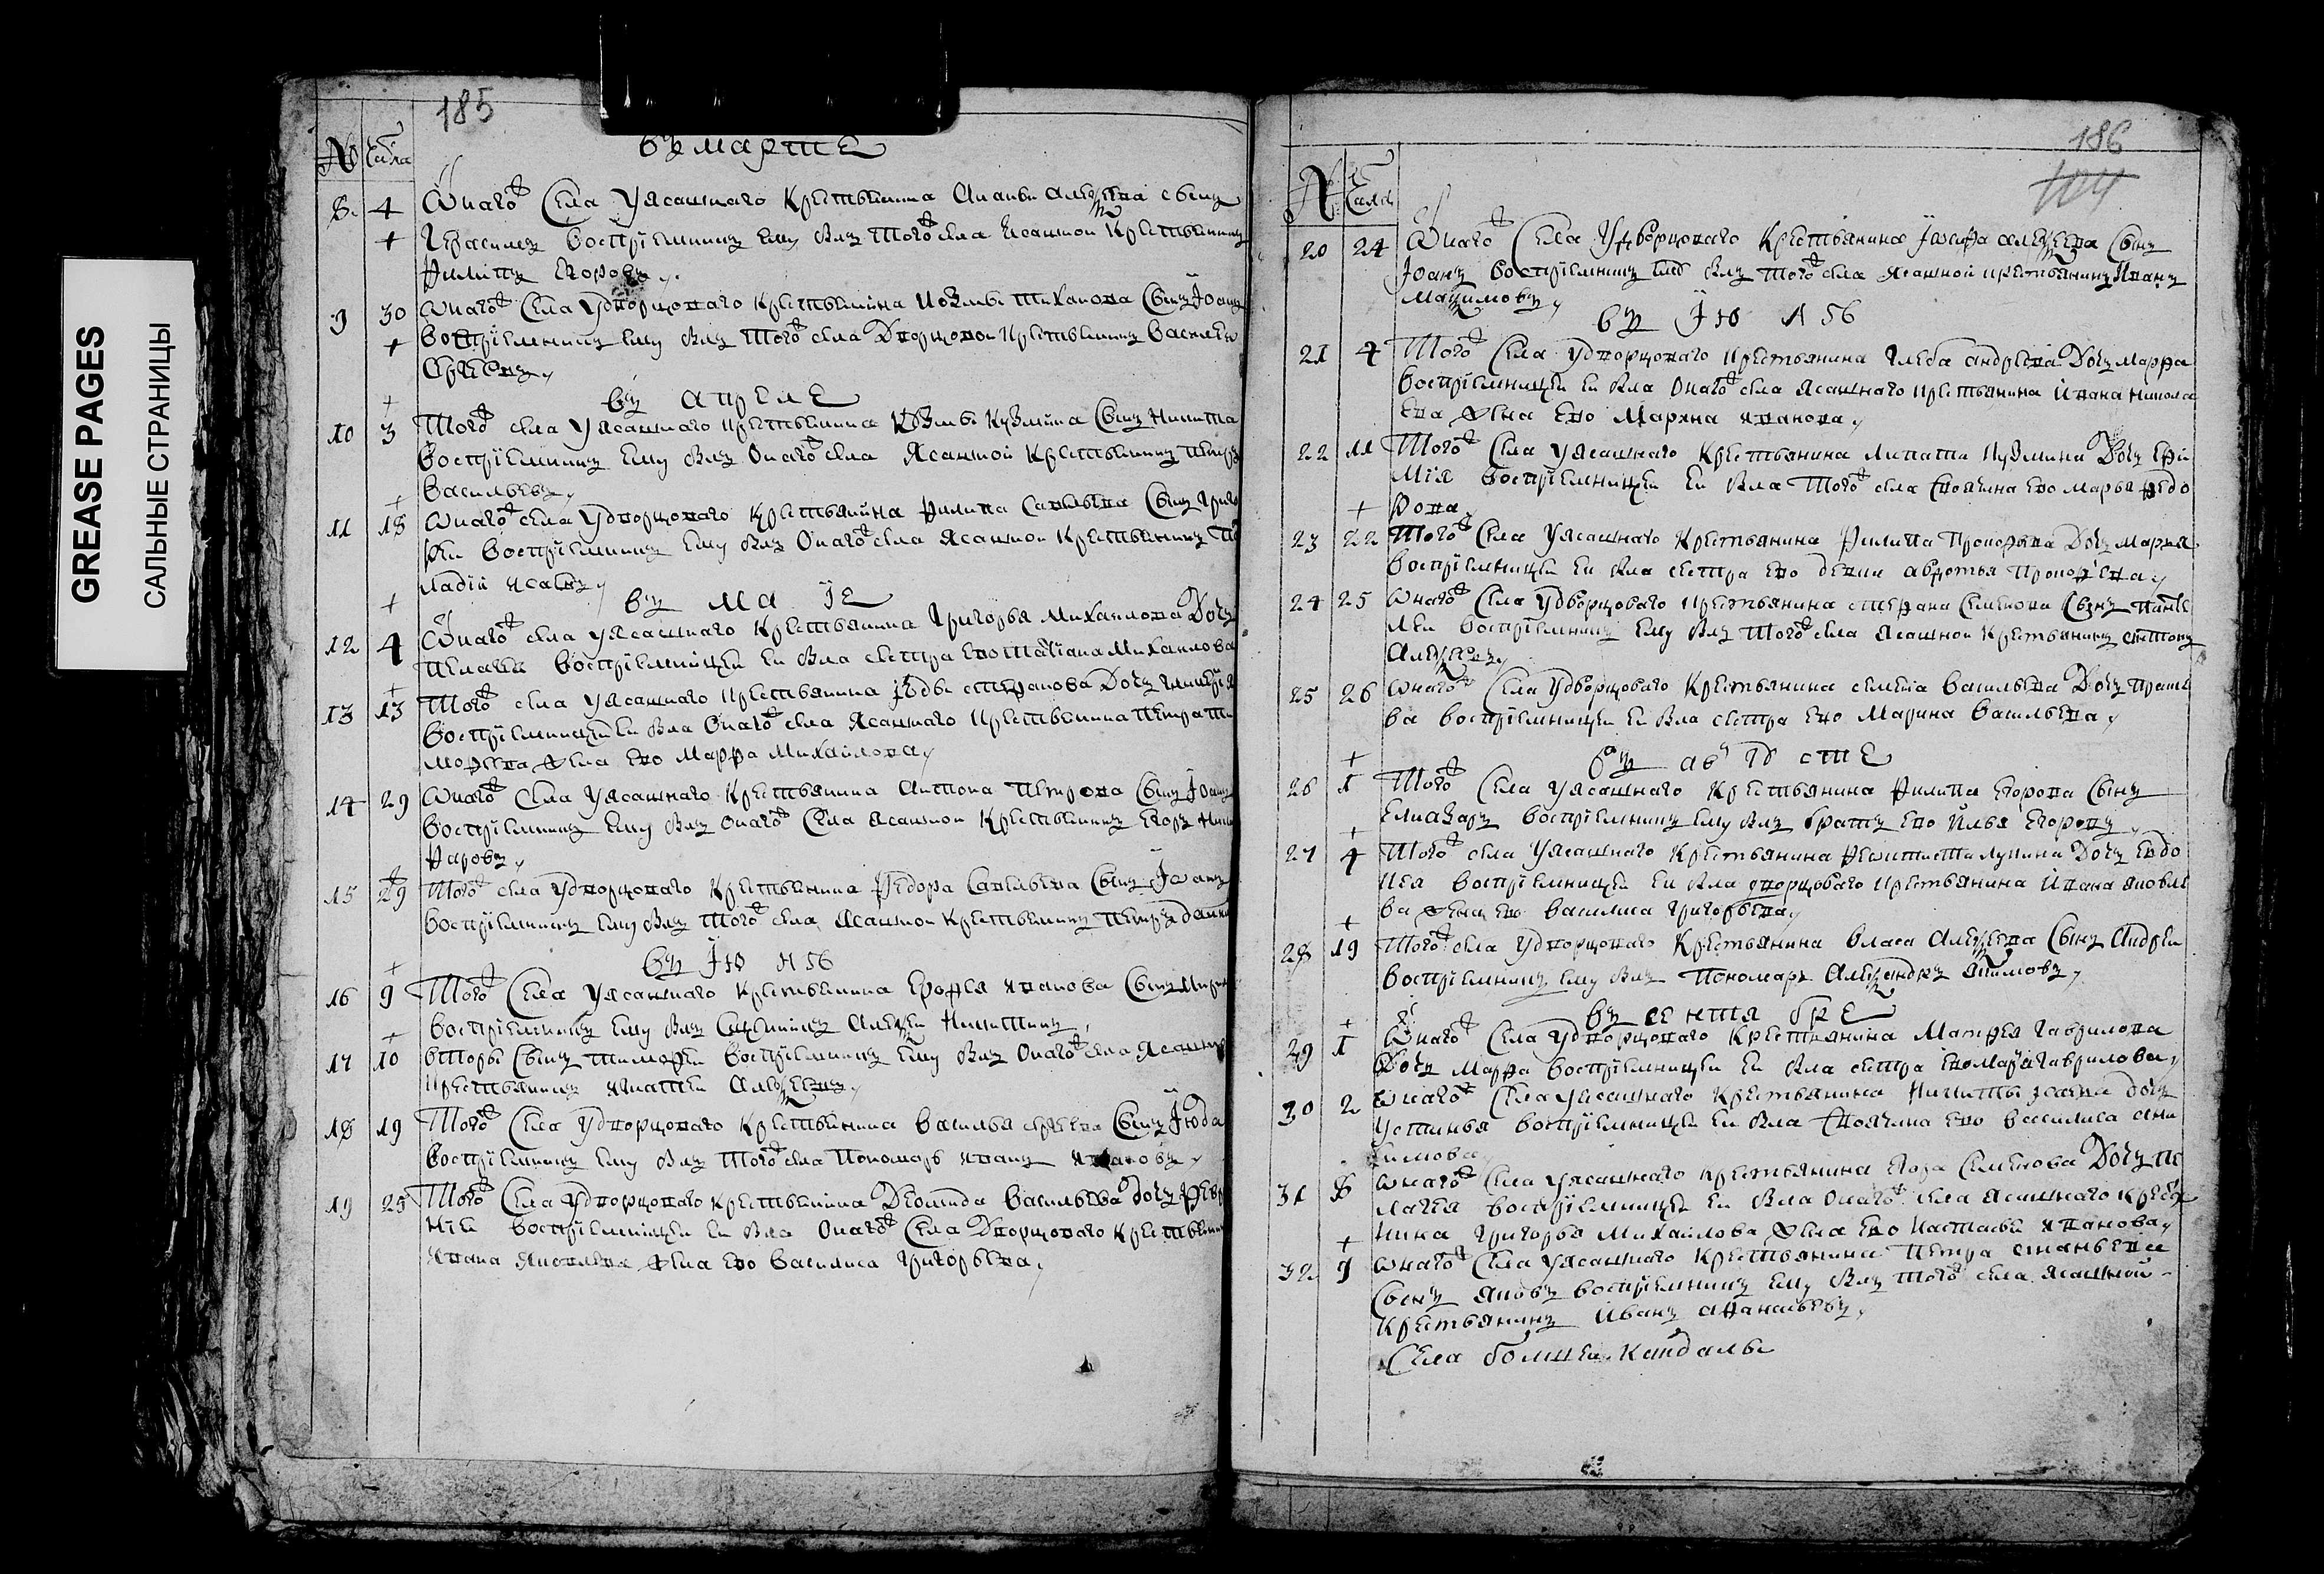 GREASE PAGES
САЛЬНЫЕ СТРАНИЦЫ
185
въ марте
№ Числа
8 4 Онаго села у ясашнаго крестьянина Ананьи Алексеева сынъ
Герасимъ восприемникъ ему былъ того села ясашной крестьянинъ
Филипъ Егоровъ
9 30 Онаго села у дворцоваго крестьянина Козьмы Тиханова сынъ Иоанъ
восприемникъ ему былъ того села дворцовой крестьянинъ Василей
въ апреле
10 3 Того села у ясашнаго крестьянина Козьмы Кузмина сынъ Никита
восприемникъ ему былъ онаго села ясашной крестьянинъ Петръ
Васильевъ
11 18 Онаго села у дворцоваго крестьянина Филипа Савельева сынъ Григо
рей восприемникъ ему былъ онаго села ясашной крестьянинъ
ладий Исаевъ
въ маие
12 4 Онаго села у ясашнаго крестьянина Григорья Михаилова дочь
Пелагея восприемницей ей была сестра ево Татиана Михаилова
13 13 Того села у ясашнаго крестьянина Иевы Степанова дочь Гликерия
восприемницей ей была онаго села ясашнаго крестьянина Петра Ти
мофеева жена ево Марфа Михайлова
14 29 Онаго села у ясашнаго крестьянина Антона Петрова сынъ Иоанъ
восприемникъ ему былъ онаго села ясашной крестьянинъ Егоръ Ники
форовъ
15 29 Того села у дворцоваго крестьянина Федора Савельева сынъ Иоанъ
восприемникъ ему былъ того села ясашной крестьянинъ Петръ
въ июне
16 9 Того села у ясашнаго крестьянина Ерофея Иванова сынъ
восприемникъ ему былъ священникъ Алексей Никитинъ
17 10 вторы сынъ Тимофей восприемникъ ему былъ онаго села ясашной
крестьянинъ Игнатей Алексеевъ
18 19 Того села у дворцоваго крестьянина Василья сынъ Июда
восприемникъ ему былъ того села пономарь Иванъ Ивановъ
19 25 Того села у дворцоваго крестьянина Деомида Васильева дочь Февро
ния восприемницей ей была онаго села дворцоваго крестьянина
Ивана Яковлева жена ево Василиса Григорьева
186
104
№ Числа
20 24 Онаго села у дворцоваго крестьянина Иосифа Алексеева сынъ
Иоанъ восприемникъ ему былъ того села ясашной крестьянинъ Иванъ
Макимовъ
въ июле
21 4 Того села у дворцоваго крестьянина Глеба Андреева дочь Марфа
восприемницей ей была онаго села ясашнаго крестьянина Ивана Никола
ева жена ево Марина Иванова
22 11 Того села у ясашнаго крестьянина Липата Кузмина дочь Ефи
мия восприемницей ей была того села своячина ево Марья Федо
рова
23 22 Того села у ясашнаго крестьянина Филипа Прокофьева дочь Мария
восприемницей ей была сестра ево девка Авдотья Прокофьева
24 25 Онаго села у дворцоваго крестьянина Степана Семенова сынъ Панте
лей восприемникъ ему былъ того села ясашной крестьянинъ Антонъ
Алексеевъ
25 26 Онаго села у дворцоваго крестьянина Семена Васильева дочь Праско
ва восприемницей ей была сестра ево Марина Васильева
въ августе
26 1 Того села у ясашнаго крестьянина Филипа Егорова сынъ
Елиазаръ восприемникъ ему былъ братъ ево Илья Егоровъ
27 4 Того села у ясашнаго крестьянина Феоктиста Лукина дочь Евдо
кея восприемницей ей была дворцоваго крестьянина Ивана Яковле
ва жена ево Василиса Григорьева
28 19 Того села у дворцоваго крестьянина Власа Алексеева сынъ Андрей
восприемникъ ему былъ пономарь Александръ Якимовъ
въ сентябре
29 1 Онаго села у дворцоваго крестьянина Матфея Гаврилова
дочь Марфа восприемницей ей была сестра ево Мария Гаврилова
30 2 Онаго села у ясашнаго крестьянина Никиты Исаева дочь
Устинья восприемницей ей была своячина ево Василиса Яки
кимова
31 8 Онаго села у ясашнаго крестьянина Егора Семенова дочь Пе
лагея восприемницей ей была онаго села ясашнаго крестья
нина Григорья Михаилова жена ево Настасья Иванова
32 9 Онаго села у ясашнаго крестьянина Петра
сынъ Яковъ восприемникъ ему былъ того села ясашной
крестьянинъ Иванъ Афанасьевъ
Села болшей Кандалы